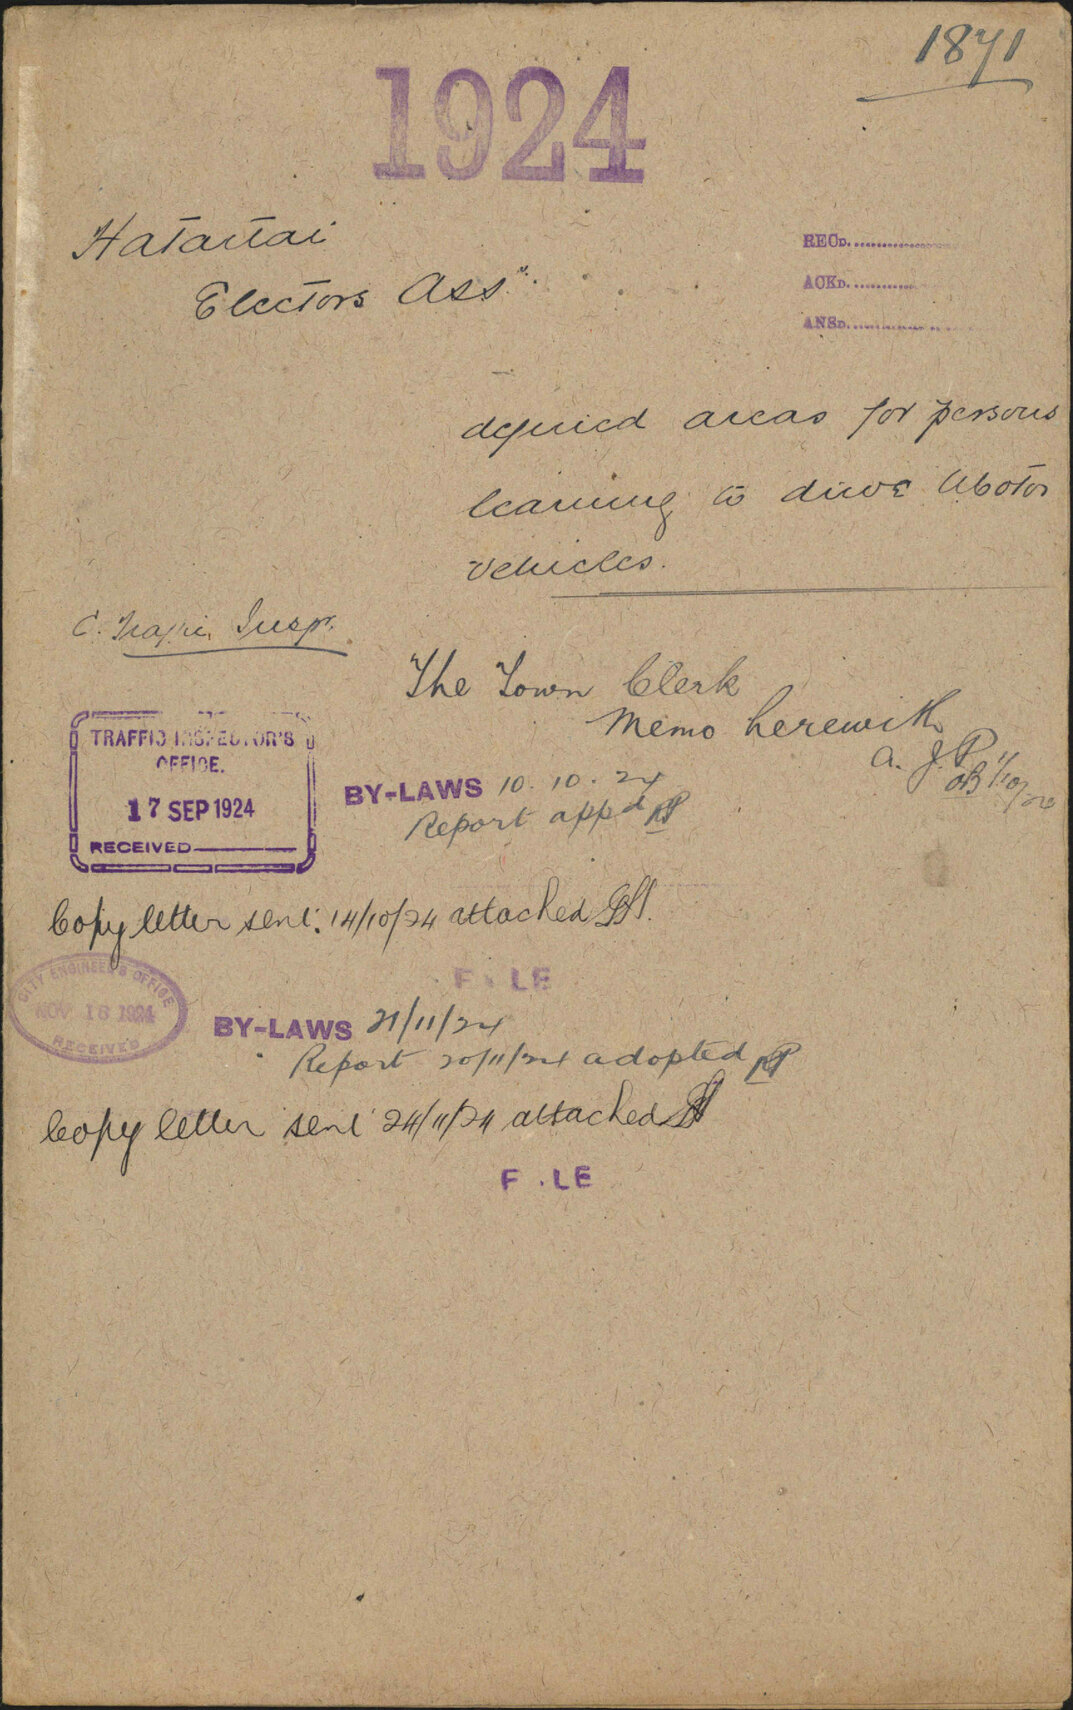 1871
1924
Hataitai
Electors Assn.
RECD.
ACKD.
ANSD.
defined areas for persons
learning to drive Motor
vehicles.
C. Traffic Inspr.
The Town Clerk
Memo herewith
A. J. P.
TRAFFIC INSPECTOR'S
OFFICE.
17 SEP 1924
RECEIVED
BY-LAWS 10.10.24
Report appd
Copy letter sent: 14/10/24 attached
FILE
CITY ENGINEER'S OFFICE
NOV 18 1924
RECEIVED
BY-LAWS 21/11/24
Report 20/11/24 adopted
Copy letter sent 24/11/24 attached
FILE